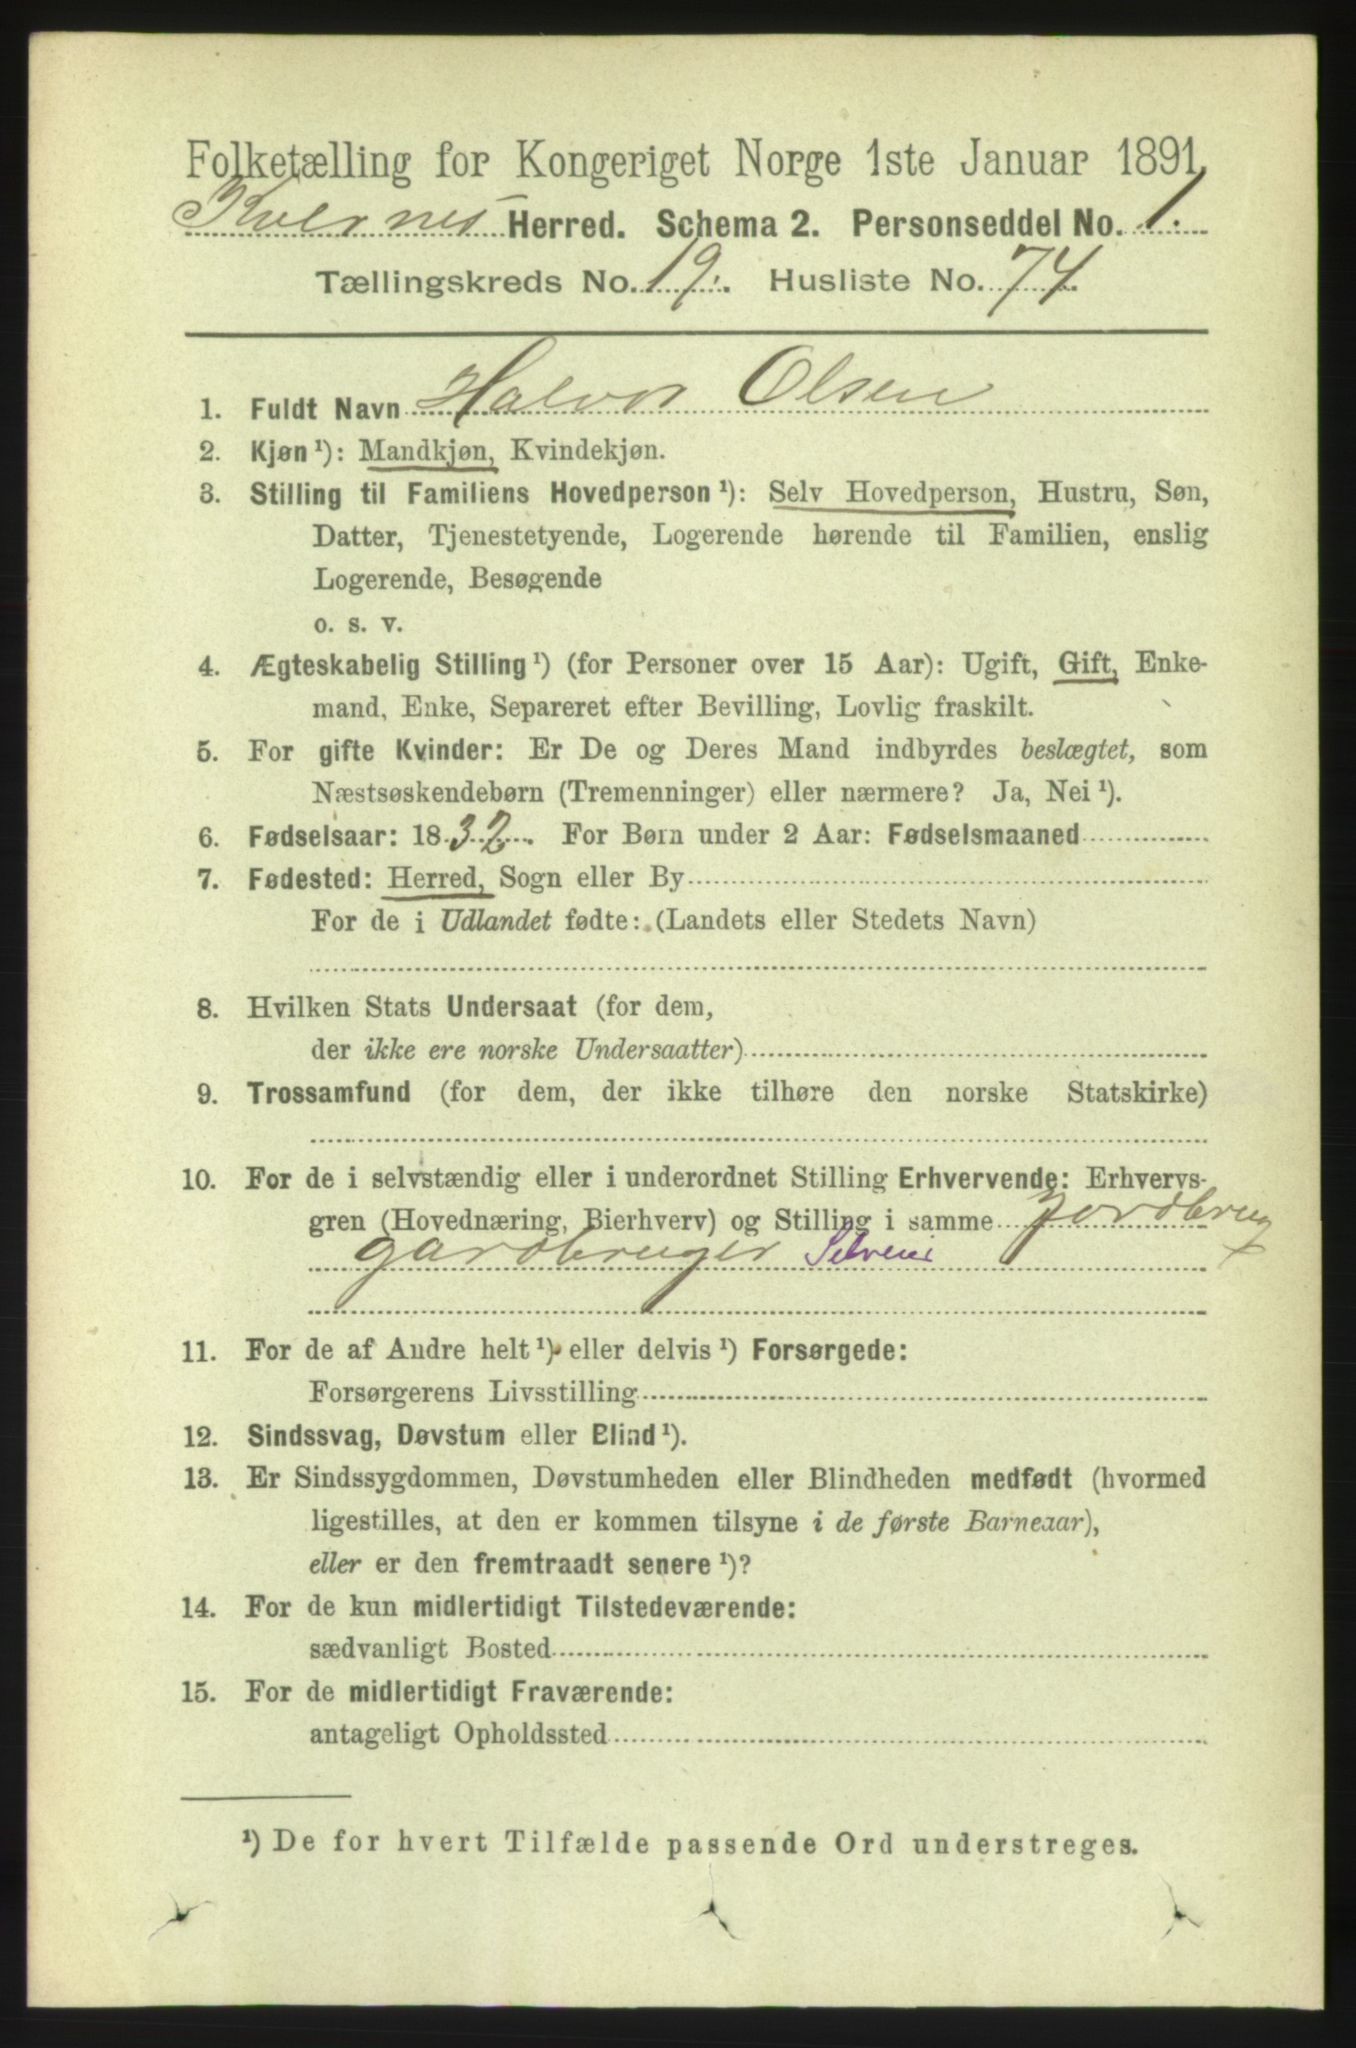 Folketælling for Kongeriget Norge 1ste Januar 1891.
Kvernes Herred. Schema 2. Personseddel No. 1.
Tællingskreds No. 19. Husliste No. 74.
1. Fuldt Navn Halvor Olsen
2. Kjøn ¹): Mandkjøn, Kvindekjøn.
3. Stilling til Familiens Hovedperson ¹): Selv Hovedperson, Hustru, Søn,
Datter, Tjenestetyende, Logerende hørende til Familien, enslig
Logerende, Besøgende
o. s. v.
4. Ægteskabelig Stilling ¹) (for Personer over 15 Aar): Ugift, Gift, Enke-
mand, Enke, Separeret efter Bevilling, Lovlig fraskilt.
5. For gifte Kvinder: Er De og Deres Mand indbyrdes beslægtet, som
Næstsøskendebørn (Tremenninger) eller nærmere? Ja, Nei ¹).
6. Fødselsaar: 1832. For Børn under 2 Aar: Fødselsmaaned
7. Fødested: Herred, Sogn eller By
For de i Udlandet fødte: (Landets eller Stedets Navn)
8. Hvilken Stats Undersaat (for dem,
der ikke ere norske Undersaatter)
9. Trossamfund (for dem, der ikke tilhøre den norske Statskirke)
10. For de i selvstændig eller i underordnet Stilling Erhvervende: Erhvervs-
gren (Hovednæring, Bierhverv) og Stilling i samme Jordbrug
gardbruger Selveier
11. For de af Andre helt ¹) eller delvis ¹) Forsørgede:
Forsørgerens Livsstilling
12. Sindssvag, Døvstum eller Blind ¹).
13. Er Sindssygdommen, Døvstumheden eller Blindheden medfødt (hvormed
ligestilles, at den er kommen tilsyne i de første Barneaar),
eller er den fremtraadt senere ¹)?
14. For de kun midlertidigt Tilstedeværende:
sædvanligt Bosted
15. For de midlertidigt Fraværende:
antageligt Opholdssted
¹) De for hvert Tilfælde passende Ord understreges.